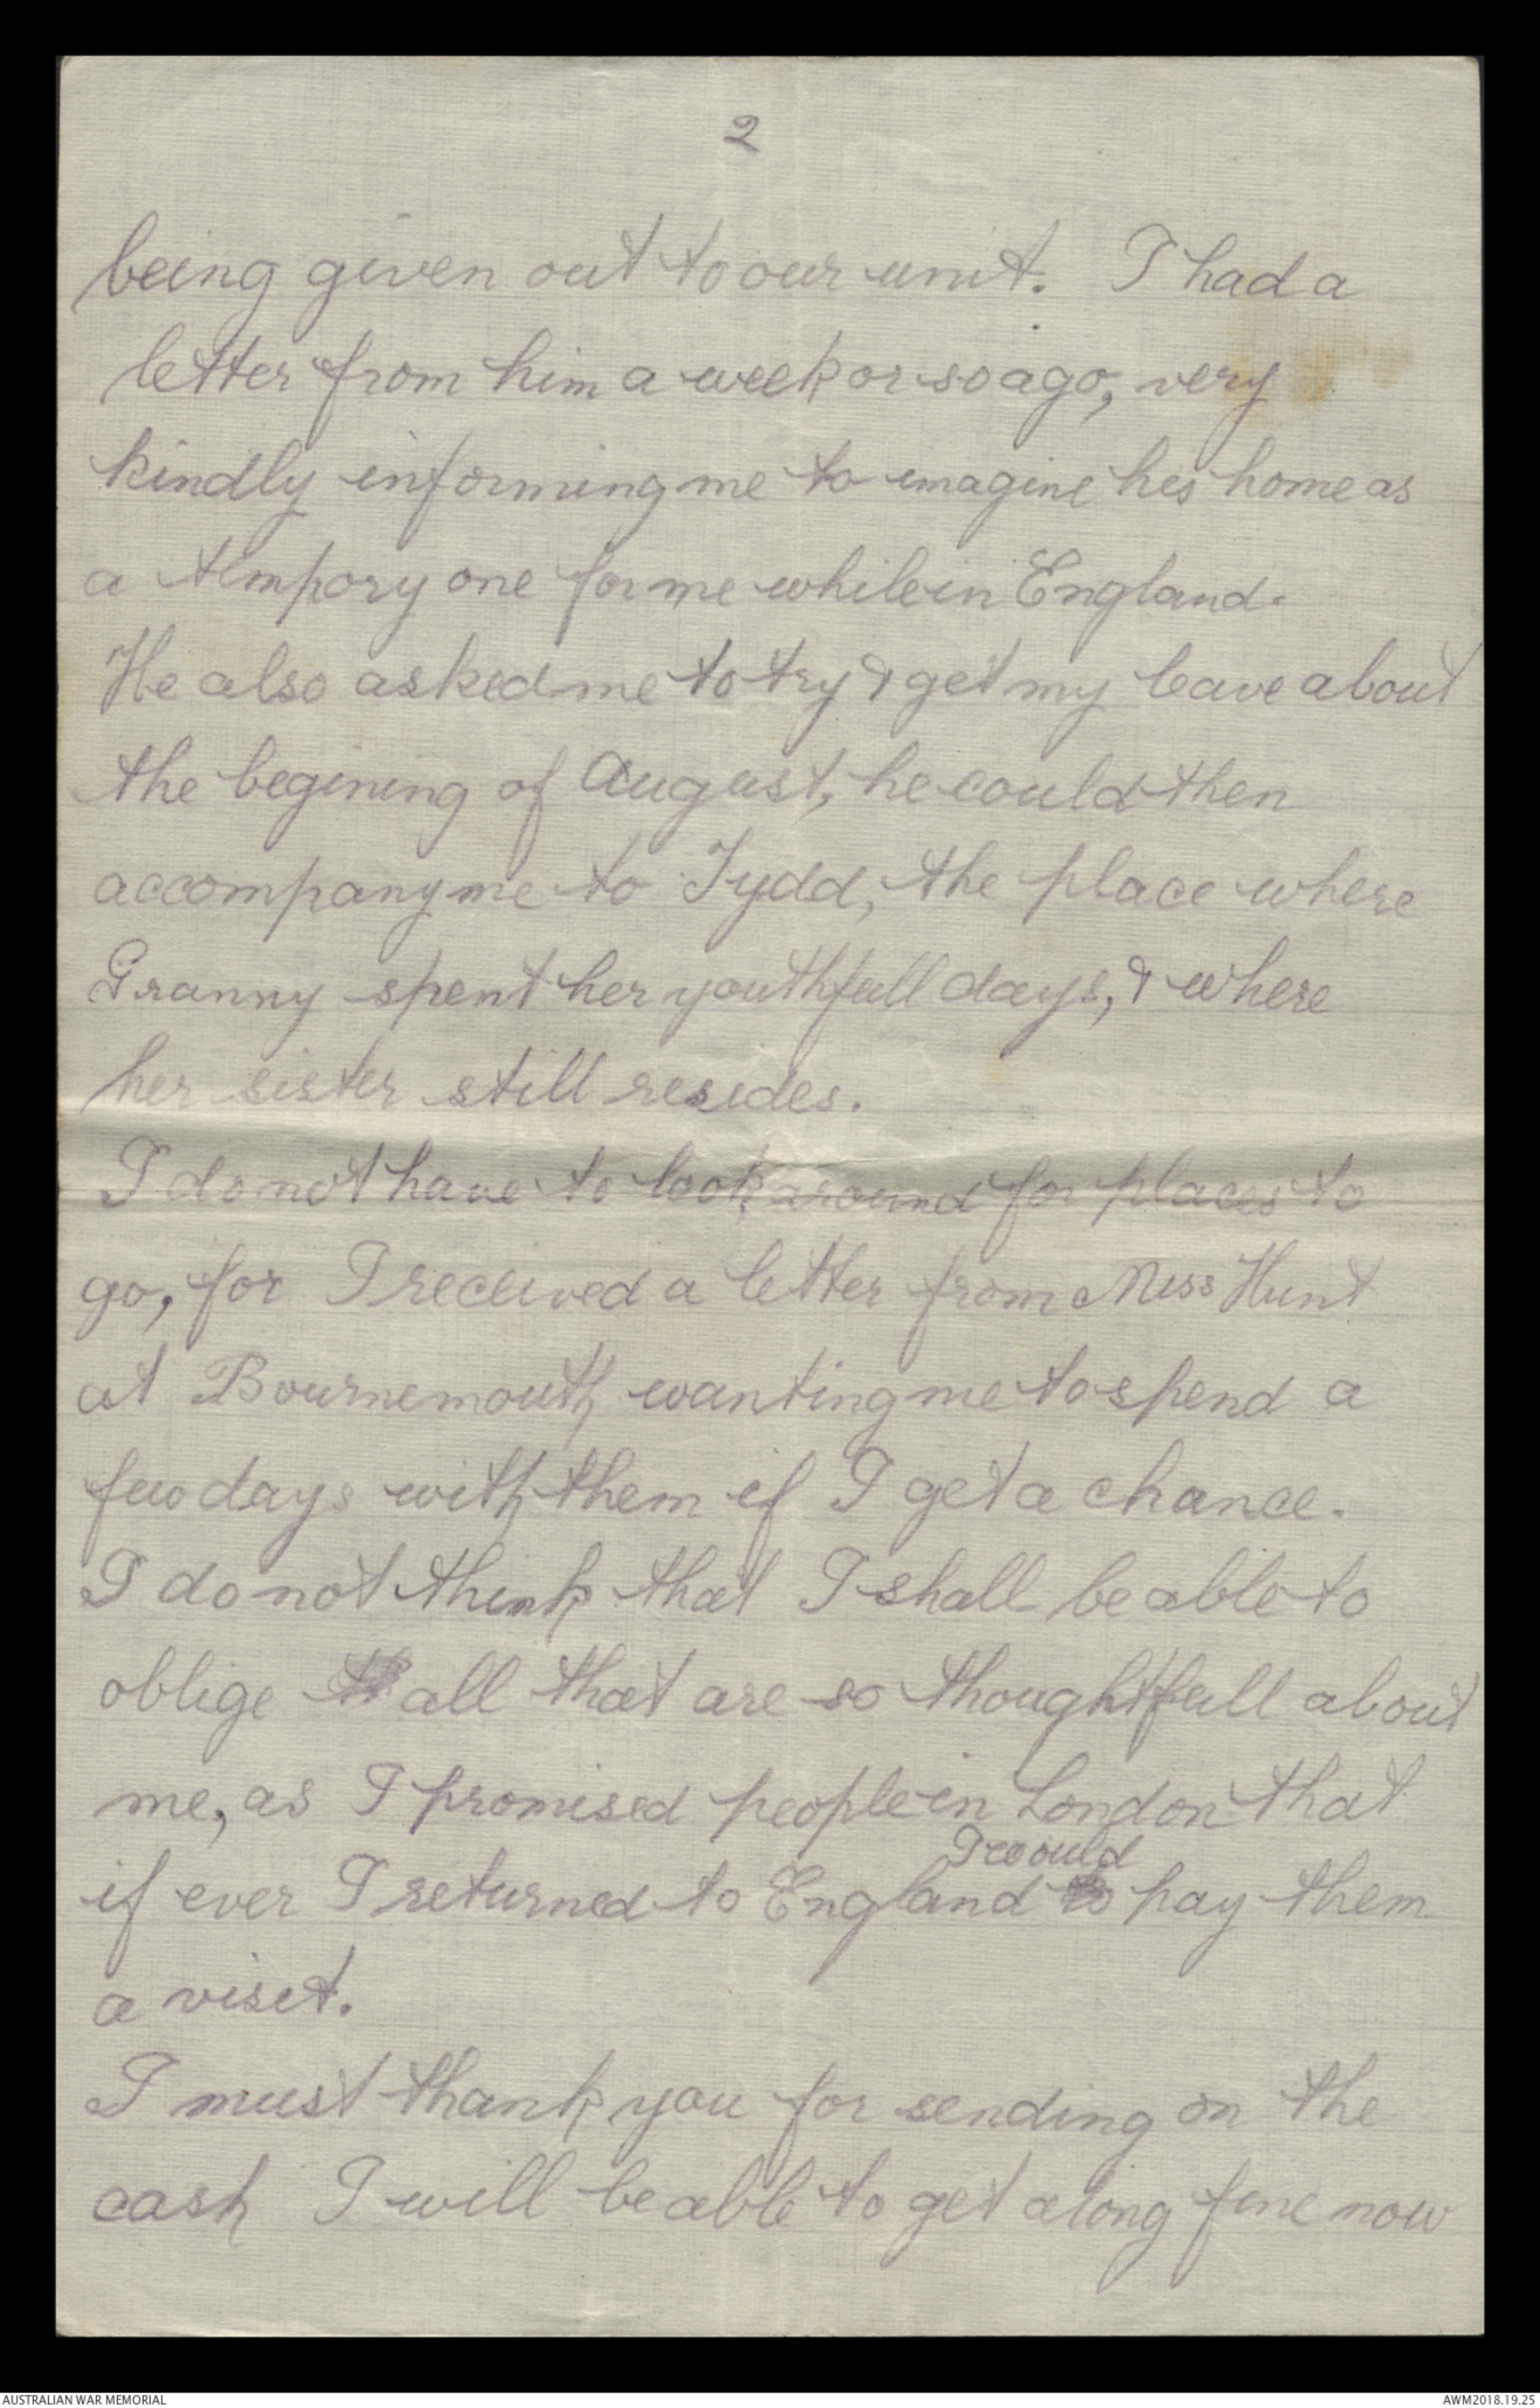 2
being given out to our unit. I had a
letter from him a week or so ago, very
kindly informing me to imagine his home as
a tempory one for me while in England.
He also asked me to try & get my leave about
the begining of August, he could then
accompany me to Tydd, the place where
Granny spent her youthfull days, & where
her sister still resides.
I do not have to look around for places to
go, for I received a letter from Miss Hunt
at Bournemouth wanting me to spend a
few days with them if I get a chance.
I do not think that I shall be able to
oblige all that are so thoughtfull about
me, as I promised people in London that
I would
if ever I returned to England to pay them
a viset.
I must thank you for sending on the
cash I will be able to get along fine now
AUSTRALIAN WAR MEMORIAL
AWM2018.19.25